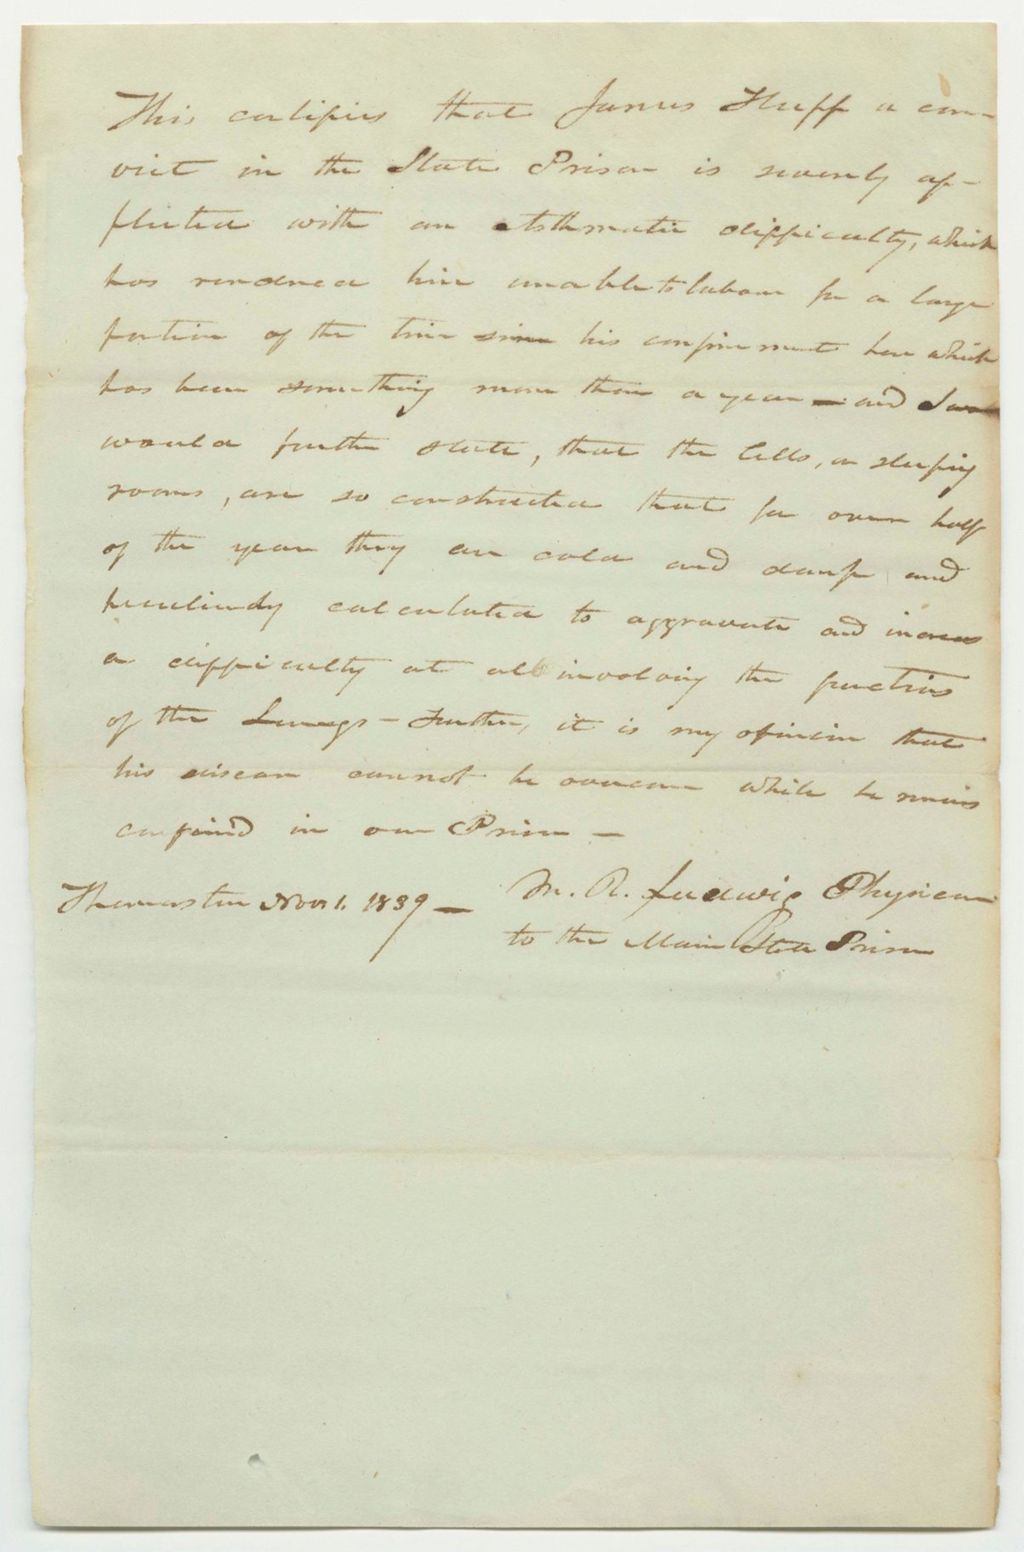 This certifies that James Huff a con-
vict in the State Prison is severely af-
flicted with an Asthmatic difficulty, which
has rendered him unable to labour for a large
portion of the time since his confinement here which
has been something more than a year — and I
would further state, that the Cells, or sleeping
rooms, are so constructed that for over half
of the year they are cold and damp and
peculiarly calculated to aggravate and increase
a difficulty at all involving the functions
of the Lungs — Further, it is my opinion that
his disease cannot be overcome while he remains
confined in our Prison —
Thomaston Nov 1. 1839 —
M. R. Ludwig Physician
to the Maine State Prison